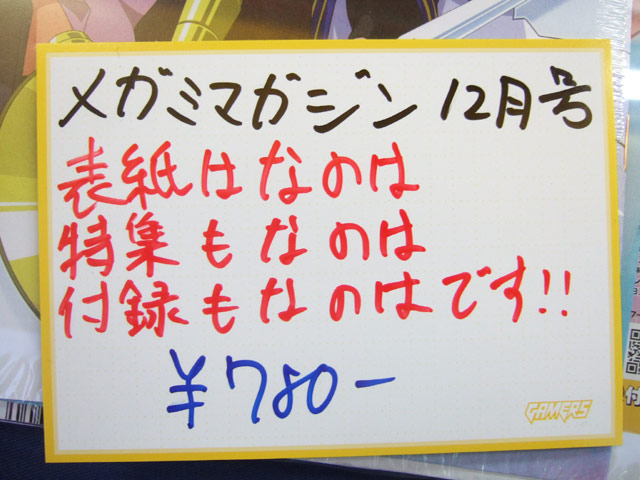 メガミマガジン 12月号
表紙はなのは
特集もなのは
付録もなのはです!!
¥780-
GAMERS
付